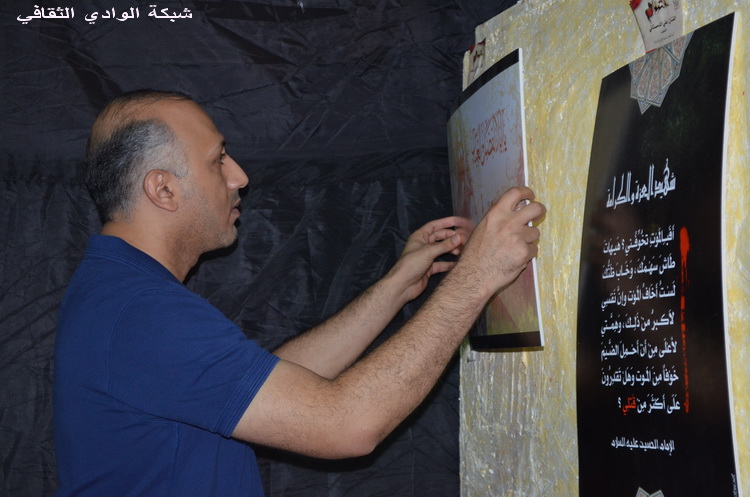 شبكة الوادي الثقافي
شهيد العزة والكرامة
أفبالموت تخوّفني؟ هيهات
طاش سهمك، وخاب ظنّك
لستُ أخافُ الموت وإنّ نفسي
لأكبرُ من ذلك، وهمّتي
لأعلى مِن أن أحمِلَ الضّيمَ
خوفاً مِنَ الموتِ وَهَل تَقدِرونَ
عَلَى أكثَرَ مِن قَتلي؟
الإمام الحسين عليه السلام